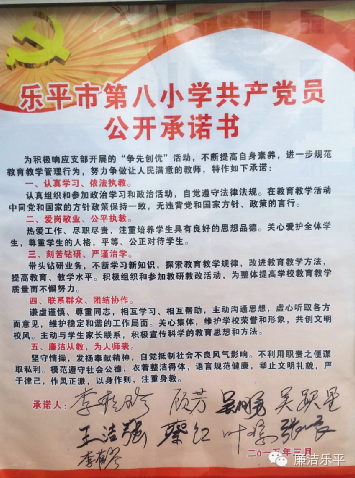 乐平市第八小学共产党员
公开承诺书
为积极响应支部开展的“争先创优”活动，不断提高自身素养，进一步规范
教育教学管理行为，努力争做让人民满意的教师，特作如下承诺：
一、认真学习、依法执教。
认真组织和积极参加政治学习和政治活动，自觉遵守法律法规。在教育教学活动
中同党和国家的方针政策保持一致，无违背党和国家方针、政策的言行。
二、爱岗敬业、公平执教。
热爱工作、尽职尽责、注重培养学生具有良好的思想品德。关心爱护全体学
生，尊重学生的人格，平等、公正对待学生。
三、刻苦钻研、严谨治学。
带头钻研业务，不断学习新知识，探索教育教学规律，改进教育教学方法，
提高教育、教学水平。积极组织和参加教研教改活动，为整体提高学校教育教学
质量而不懈努力。
四、联系群众、团结协作。
谦虚谨慎、尊重同志，相互学习、相互帮助，主动沟通思想，虚心听取各方
面意见，维护稳定和谐的工作局面。关心集体，维护学校荣誉和形象，共创文明
校风。主动与学生家长联系，积极宣传科学的教育思想和方法。
五、廉洁从教、为人师表。
坚守情操，发扬奉献精神，自觉抵制社会不良风气影响。不利用职责之便谋
取私利。模范遵守社会公德，衣着整洁得体，语言规范健康，举止文明礼貌，严
于律己，作风正派，以身作则，注重身教。
承诺人：
顾芳
王洁
蔡红
叶
三月
廉洁乐平